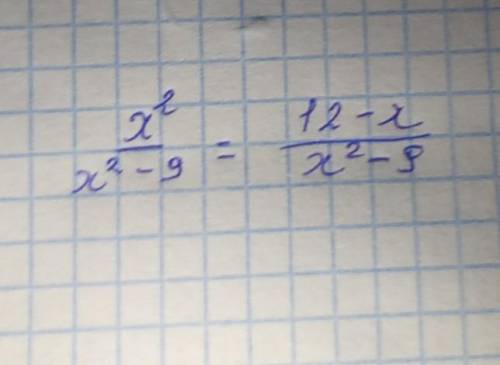 x² / (x² - 9) = (12 - x) / (x² - 9)